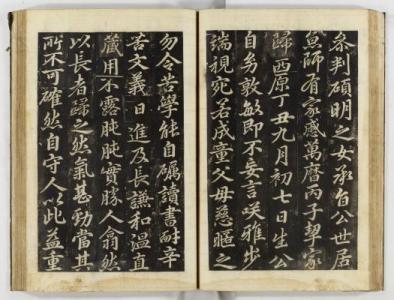 参判碩明之女承旨公世居
京師有家感萬曆丙子挈家
歸西原丁丑九月初七日生公
自幼敦敏即不妄言笑雅步
端視宛若成童父母慈嫗之
勿令苦學能自礪讀書耐辛
苦文義日進及長謙和溫直
蔵用不露肫肫實勝人翕然
以長者歸之然氣甚勁當其
所不可確然自守人以此益重